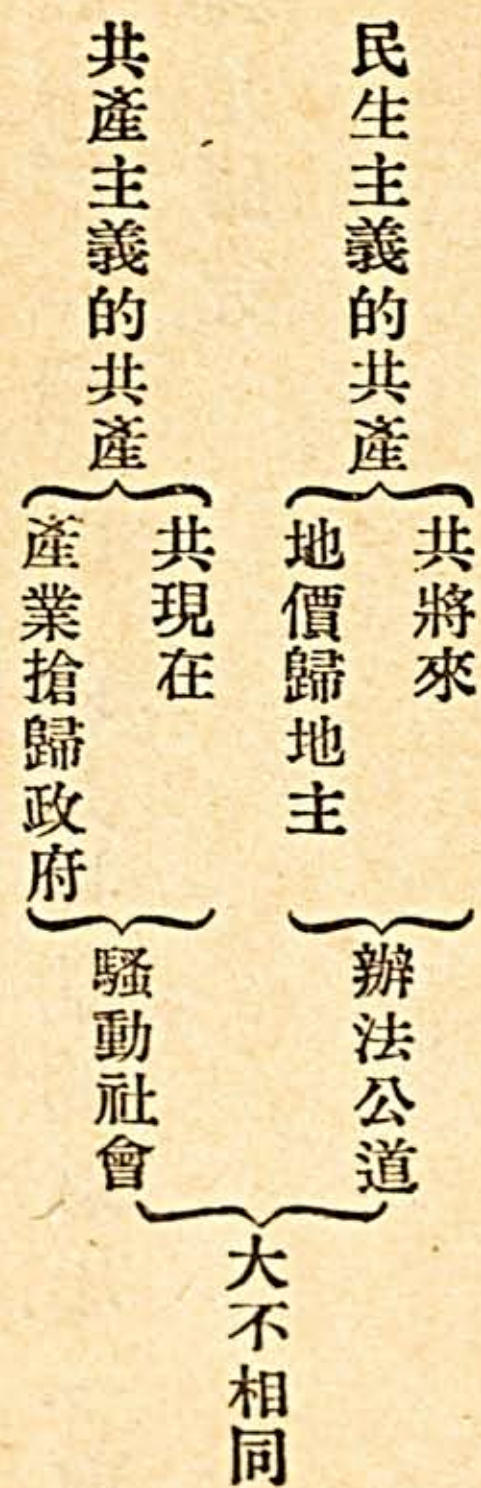 民生主義的共產
共將來
地價歸地主
辦法公道
共產主義的共產
共現在
產業搶歸政府
騷動社會
大不相同